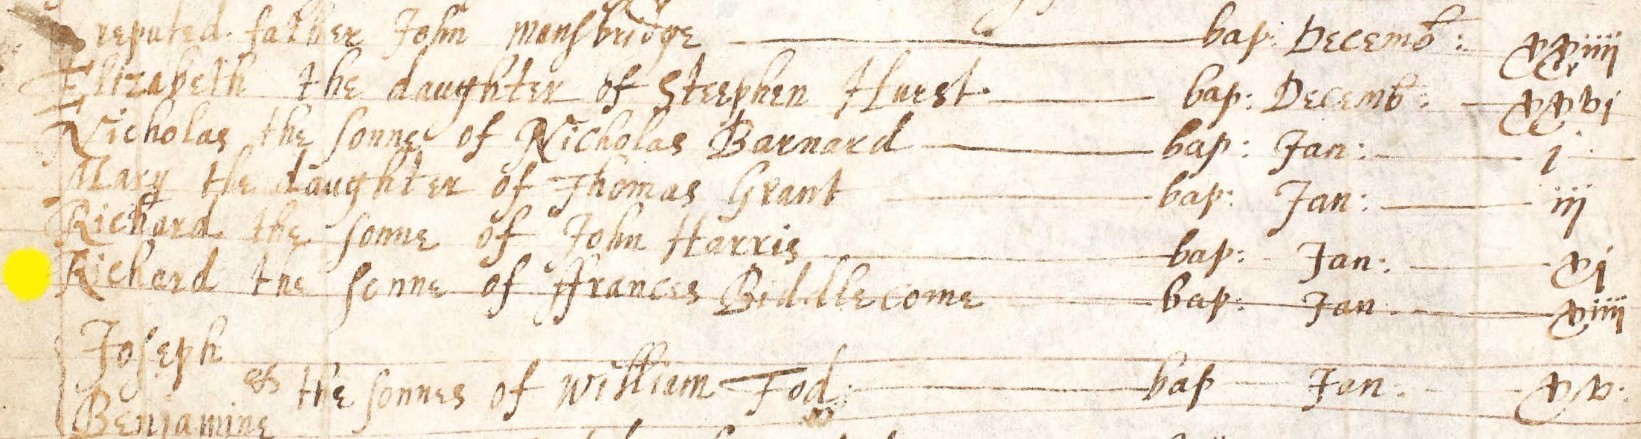 reputed father John Monsbridge bap: Decemb: xxiiij
Elizabeth the daughter of Steephen Hurst bap: Decemb: xxvj
Nicholas the sonne of Nicholas Barnard bap: Jan: j
Mary the daughter of Thomas Grant bap: Jan: iij
Richard the sonne of John Harris bap: Jan: xj
Richard the sonne of ffrances Biddlecome bap: Jan xiiij
Joseph
& the sonnes of William Tod bap Jan: xv.
Benjamine